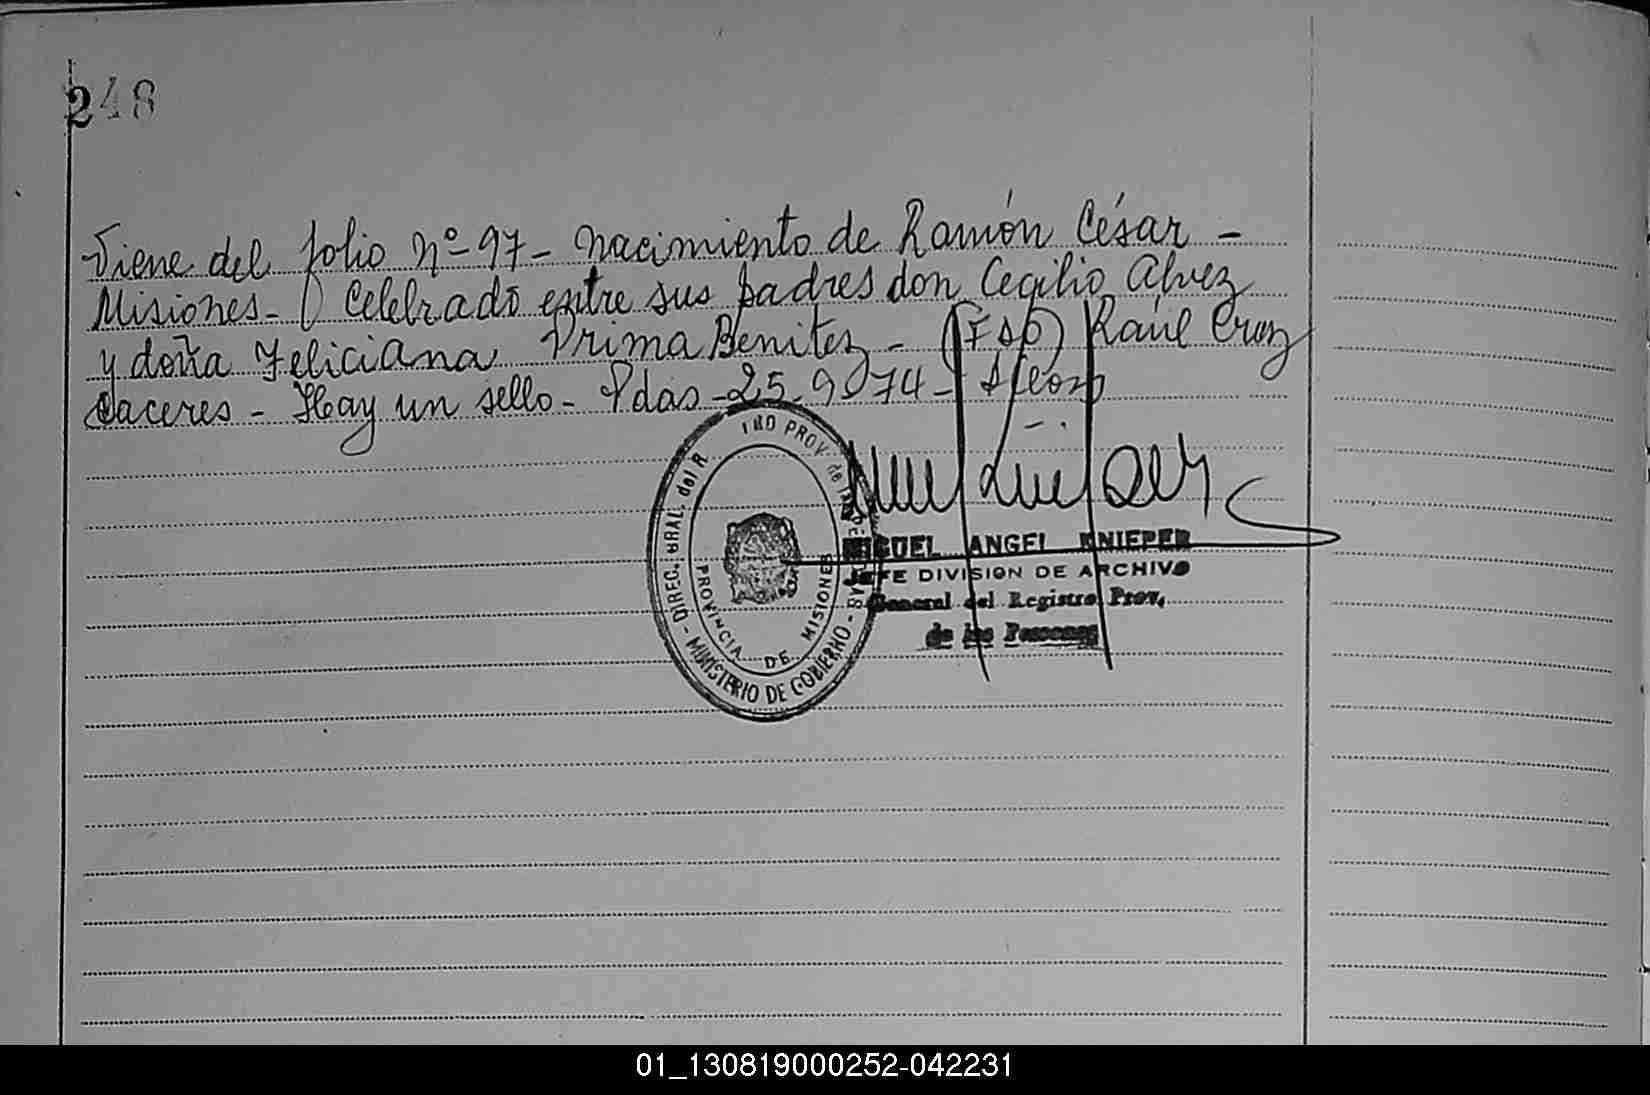 248
Viene del folio Nº 97 - Nacimiento de Ramón César -
Misiones - Celebrado entre sus padres don Cecilio Alvez
y doña Feliciana Prima Benitez - (Fdo) Raúl Cruz
Caceres - Hay un sello - Pdas - 25-9-974 -
DIREC. GRAL. del R PROV. de
MINISTERIO DE GOBIERNO
PROVINCIA DE MISIONES
MIGUEL ANGEL KNIEPER
JEFE DIVISION DE ARCHIVO
General del Registro Prov.
de las Personas
01_130819000252-042231